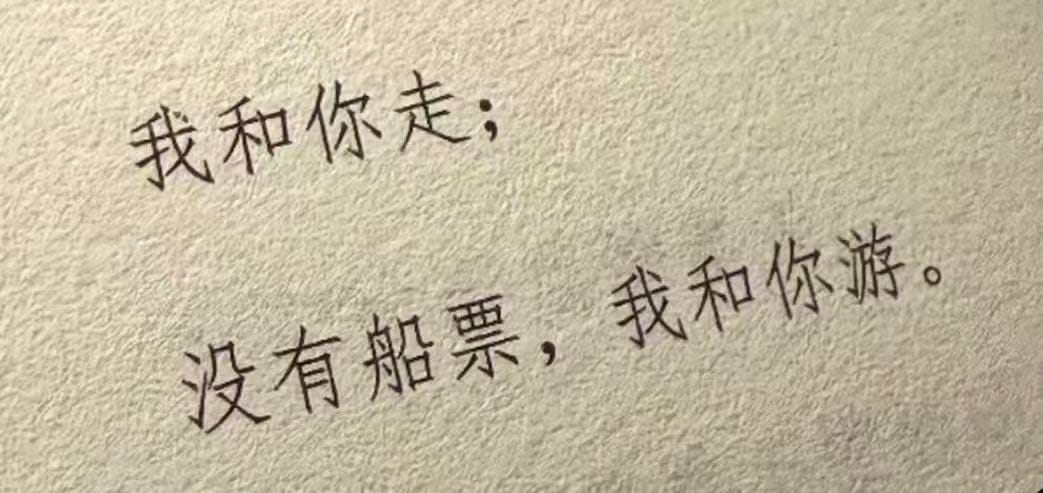 我和你走；
没有船票，我和你游。